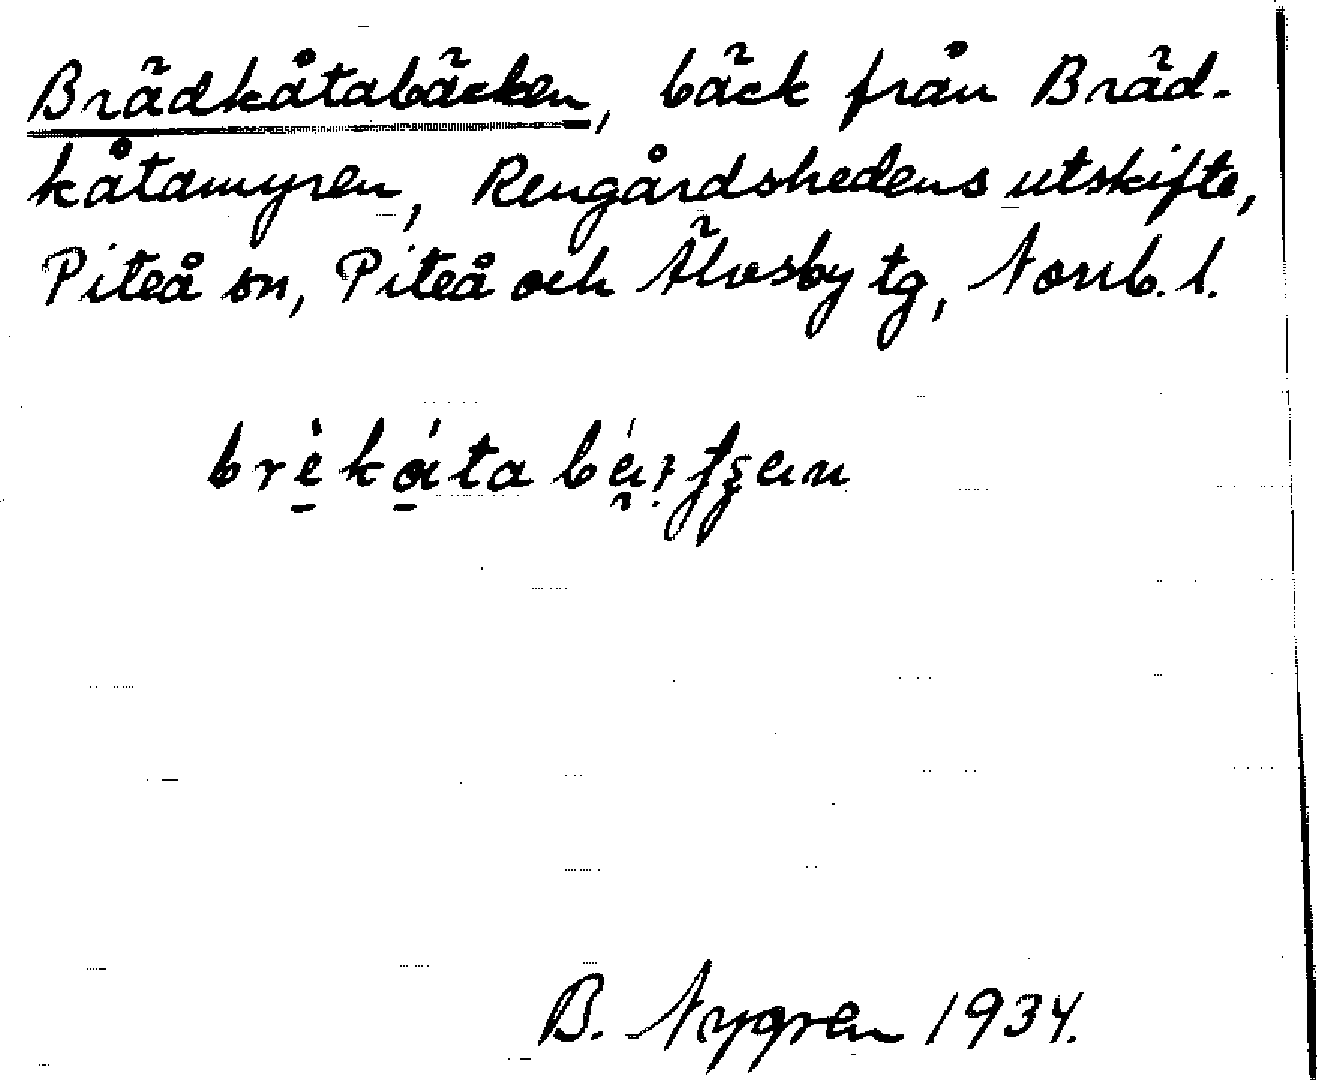 Brädkåtabäcken, bäck från Bräd-
kåtamyren, Rengårdshedens utskifte,
Piteå sn, Piteå och Älvsby tg, Norrb. l.
B. Nygren 1934.